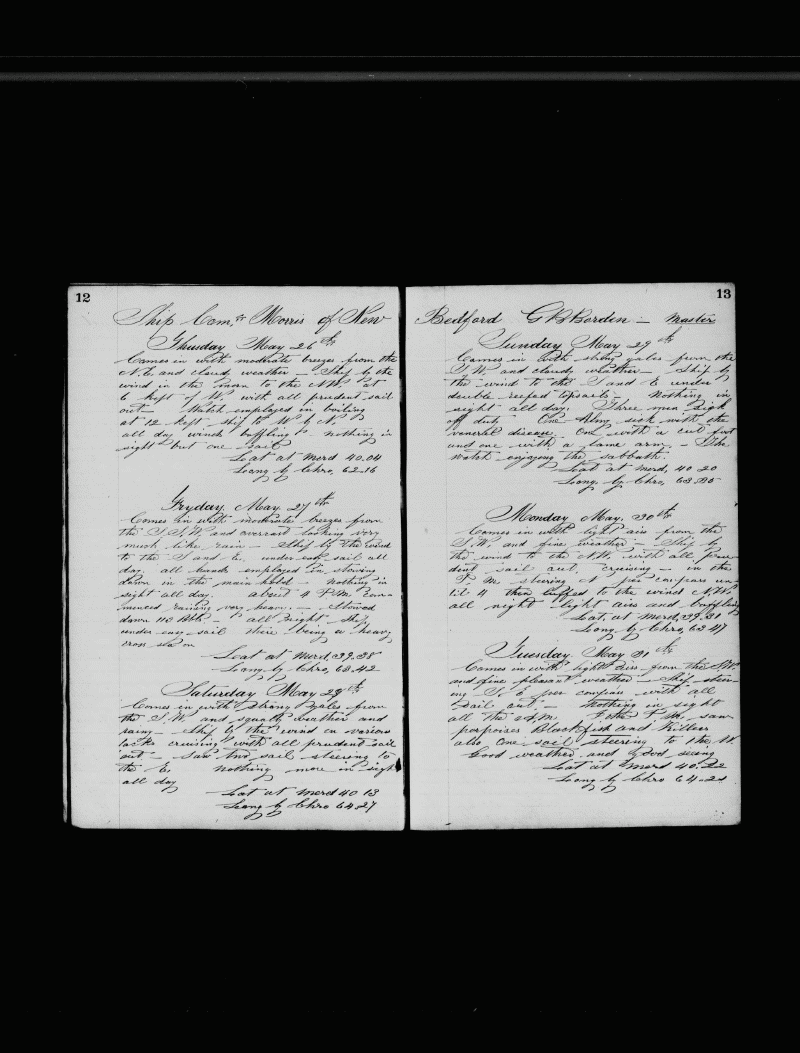 12
Ship Com. Morris of New
Thursday May 26th
Comes in with moderate breezes from the
N.E. and cloudy weather — Ship by the
wind in the morn to the NW at
6 kept of W. with all prudent sail
out — Watch employed in boiling
at 12 kept ship to W by N.
all day winds baffling — nothing in
sight but one sail
Lat at Merd 40.04
Long by Chro, 62.16
Fryday, May, 27th
Comes in with moderate breezes from
the S.S.W. and overcast looking very
much like rain — Ship by the wind
to the S and E, under easy sail all
day. all hands employed in stowing
down in the main hold — nothing in
sight all day. about 4 P.M. com-
menced raining very heavy. — Stowed
down 110 Bbls — all night Ship
under easy sail there being a heavy
cross sea on
Lat at Merd, 39.38
Long by Chro, 63.42
Saturday May 28th
Comes in with strong gales from
the S.W. and squally weather and
rainy — Ship by the wind on various
tacks cruising with all prudent sail
out — Saw two sail steering to
the E, nothing more in sight
all day
Lat at Merd 40 13
Long by Chro 64.27
13
Bedford G B Borden — Master
Sunday May 29th
Comes in with strong gales from the
S.W. and cloudy weather — Ship by
the wind to the S and E under
double reefed topsails — Nothing in
sight all day. Three men sick
off duty. One sick with the
veneral disease. One with a cut foot
and one with a lame arm. — The
watch enjoying the sabbath.
Lat at Merd, 40 20
Long, by Chro, 63.
Monday May, 30th
Comes in with light airs from the
S.W. and fine weather — Ship by
the wind to the NW. with all pru-
dent sail out. cruising — in the
P M steering N per compass un-
til 4 then luffed to the wind N.W.
all night light airs and baffling
Lat, at Merd, 39.31
Long by Chro, 63 47
Tuesday May 31th
Comes in with light airs from the SW
and fine pleasant weather — Ship steer-
ing per compass with all
sail out — Nothing in sight
all the A.M. the P M, saw
porpoises Blackfish and Killers
also One sail steering to the W.
Good weather and good seeing
Lat at Merd 40.22
Long by Chro 64.21